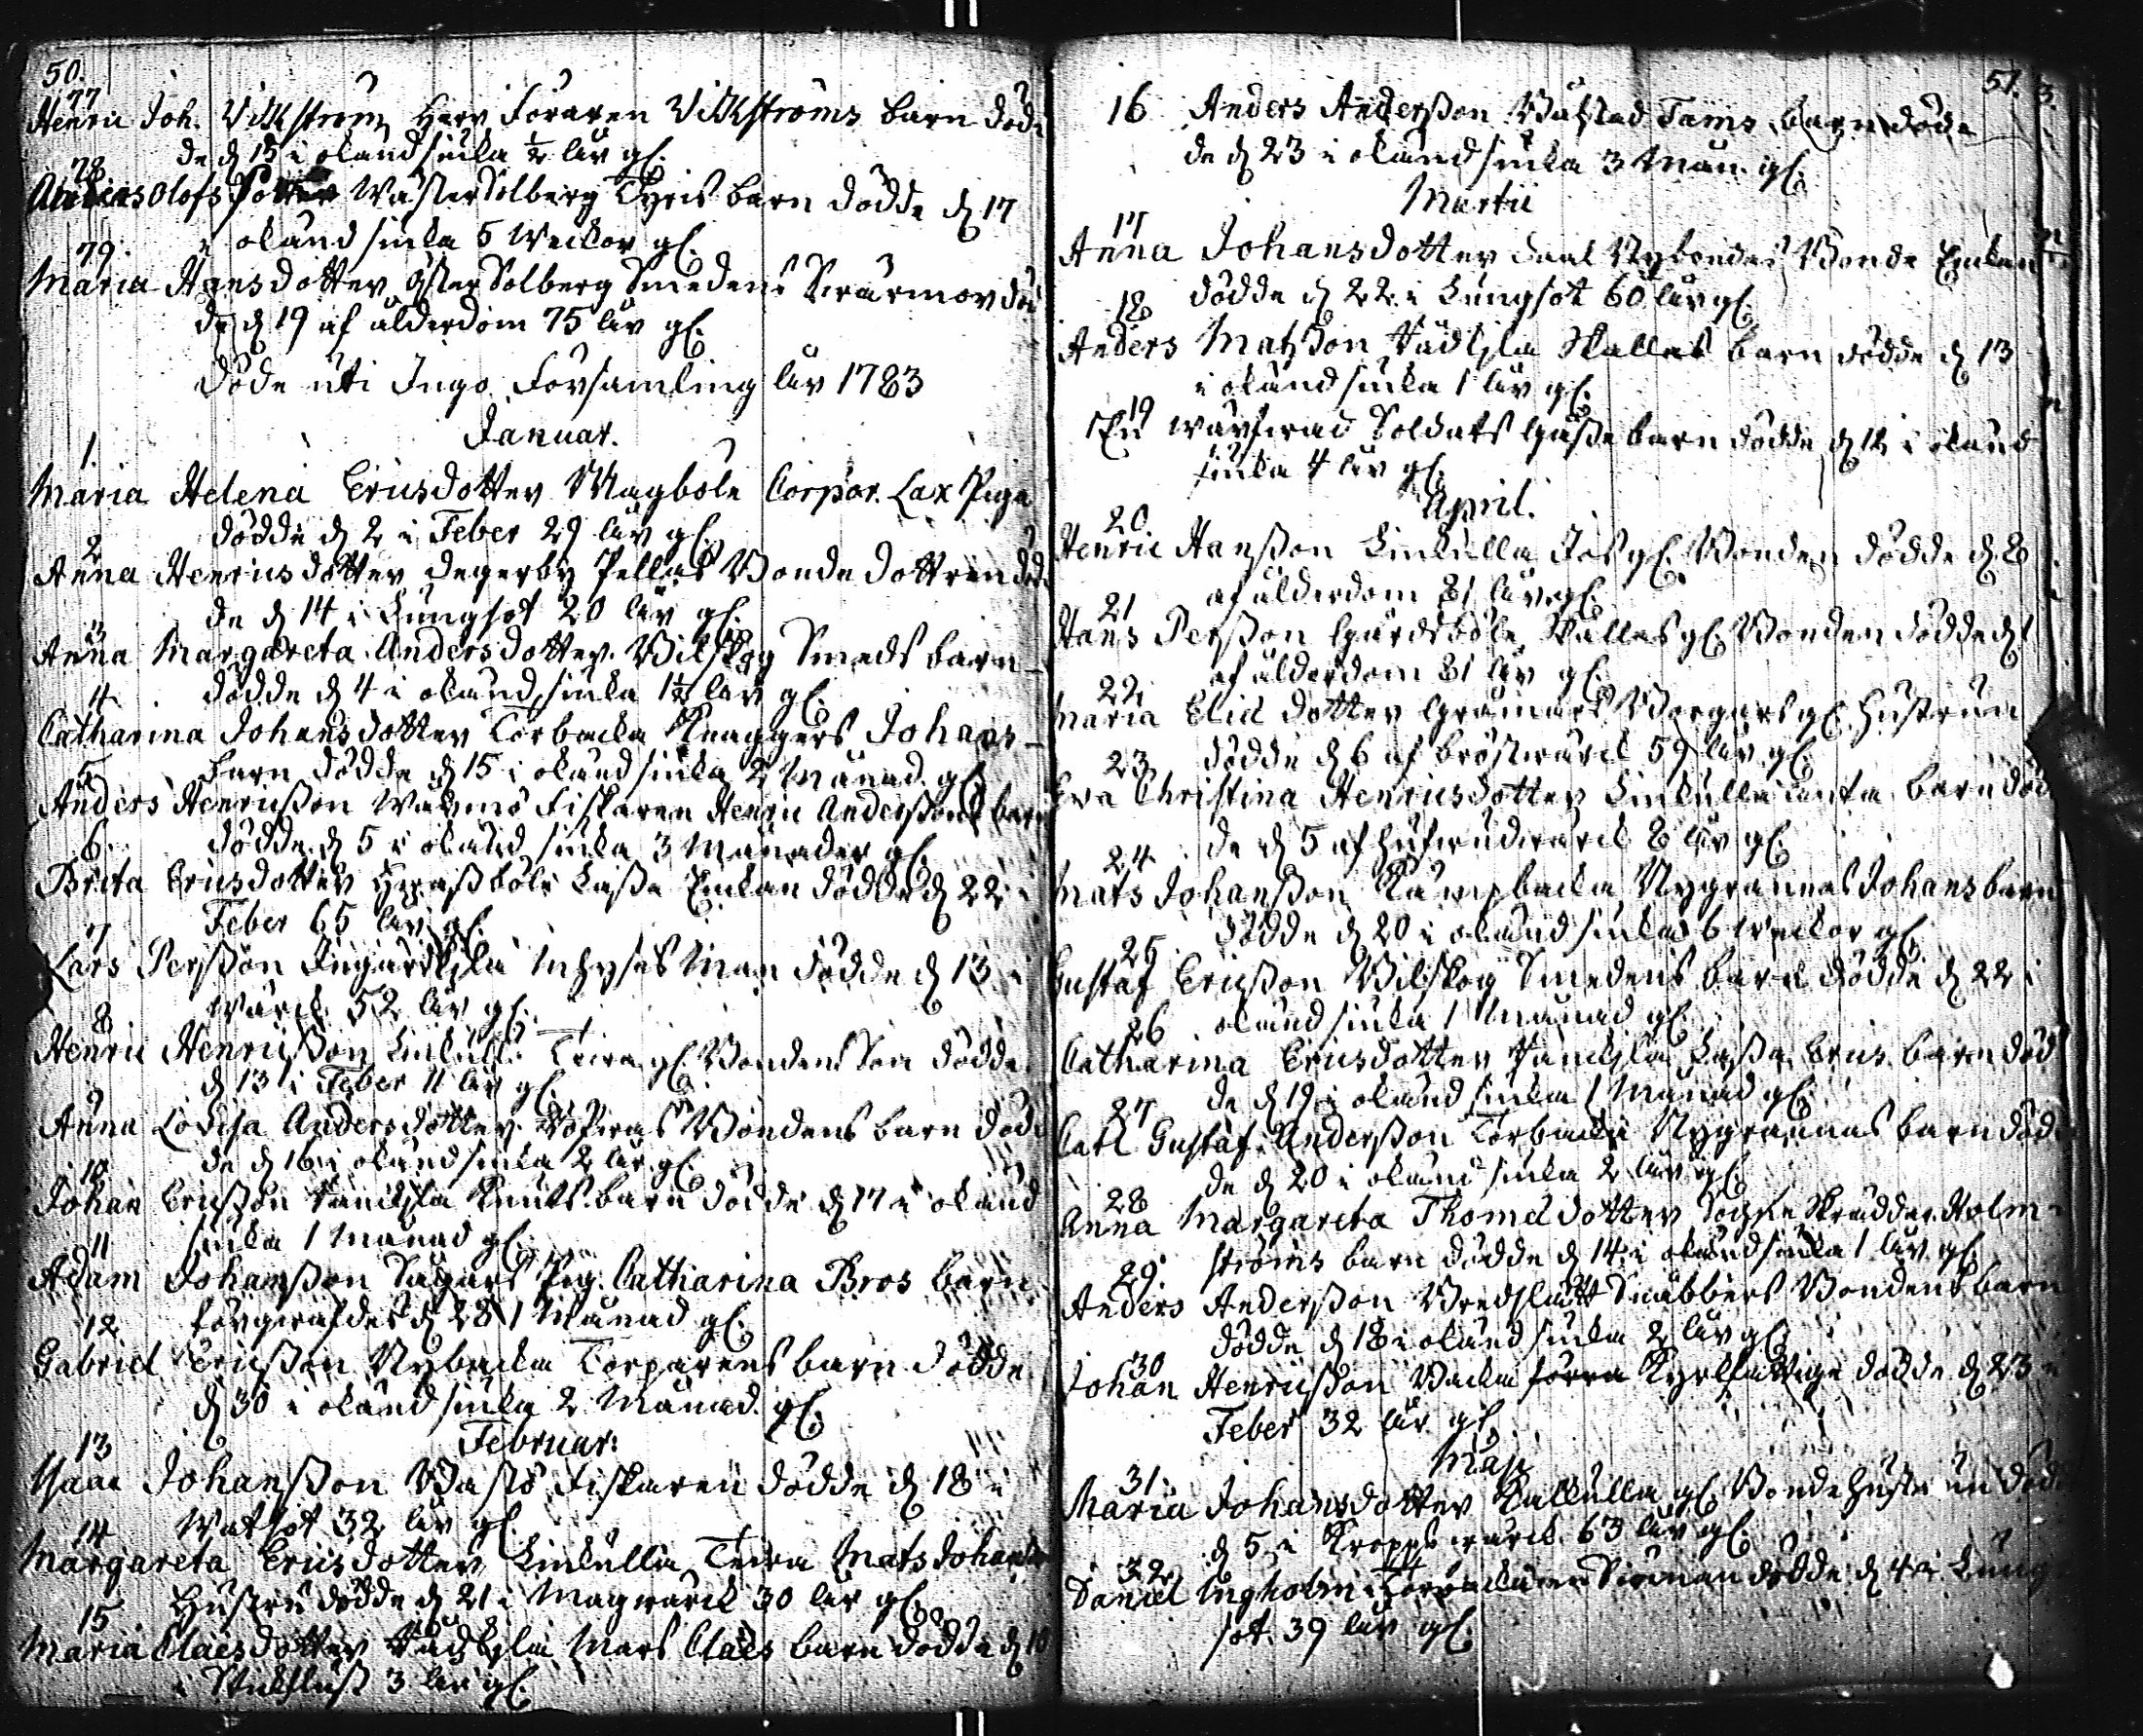 50.
77
Henric Joh. Vikström Herr Foraren Vikströms barn död
de d 15 i okänd siuka ½ åhr gl.
78
Anders Olofs WästerSolberg barn dödde d 17
i okänd siuka 5 weckor gl.
79.
Maria Hansdotter ÖsterSolberg Smedens Swärmor död
de d 19 af ålderdom 75 åhr gl.
Döde uti Ingo Församling åhr 1783
Januar.
1.
Maria Helena Ericsdotter Magbole Corpor. Lax Piga
dödde d 2 i Feber 29 åhr gl.
2
Anna Henricsdotter Degerby Pellas Bonde dottren död
de d 14 i Lungsot 20 åhr gl.
3
Anna Margareta Andersdotter Bilskog Smeds barn
4
dödde d 4 i okänd siuka 1½ åhr gl.
Catharina Johansdotter Torbacka Knaggers Johans
5
barn dödde d 15 i okänd siuka 2 Månad. gl.
Anders Henricsson Wåhrnö Fiskaren Henric Anderssons barn
6.
dödde d 5 i okänd siuka 3 Månader gl.
Brita Ericsdotter böle Lassa Enkan dödde d 22 i
Feber 65 åhr gl.
7
Lars Persson Ingårdskila Inhyses Man dödde d 13 i
wärck 52 åhr gl.
8
Henric Henricsson Linkulla gl. Bondens Son dödde
d 13 i Feber 11 åhr gl.
9
Anna Lovisa Andersdotter Bondens barn död
de d 16 i okänd siuka 2 åhr gl.
10
Johan Ericsson Knuts barn dödde d 17 i okänd
siuka 1 Månad gl.
11
Adam Johansson Sågars Pig. Catharina Bros barn
12
d 28 1 Månad gl.
Gabriel Ericsson Nybacka Torparens barn dödde
d 30 i okänd siuka 2 Månad. gl.
Februar:
13
Isaac Johansson Bastö Fiskaren dödde d 18 i
Watsot 32 åhr gl.
14
Margareta Ericsdotter Linkulla Mats Johans
Hustru dödde d 21 i Magwärck 30 åhr gl.
15
Maria Claesdotter Wådkila Mars Claes barn dödde d 10
i Stickfluss 3 åhr gl.
51.
16 Anders Andersson Båhstad Tams barn död
de d 23 i okänd siuka 3 Mån. gl.
Martii
17
Anna Johansdotter Dahl Nybondas Bonde Enkan
dödde d 22 i Lungsot 60 åhr gl.
18
Anders Matsson Wådkila Skallas barn dödde d 13
i okänd siuka 1 åhr gl.
19
En wärfwad Soldats barn dödde d 12 i okänd
siuka 4 åhr gl.
April.
20
Henric Hansson Linkulla gl. Bonden dödde d 8
af ålderdom 81 åhr gl.
21
Hans Persson Gårdsböle Skallas gl. Bonden dödde d 1
af ålderdom 81 åhr gl.
22
Maria Elis dotter gl. Hustrun
dödde d 6 af bröstwärck 59 åhr gl.
23
Eva Christina Henricsdotter Linkulla barn död
de d 5 af hufwudwärck 8 åhr gl.
24
Mats Johansson Kämpbacka Nygrannas Johans barn
dödde d 20 i okänd siuka 6 weckor gl.
25
Gustaf Ericsson Bilskog Smedens barn dödde d 22 i
okänd siuka 1 Månad gl.
26
Catharina Ericsdotter Lassa Erics barn död
de d 19 i okänd siuka 1 Månad gl.
27
Carl Gustaf Andersson Torbacka Nygrannas barn död
de d 20 i okänd siuka 2 åhr gl.
28
Anna Margareta Thomæ dotter Sockne Skräddar Holm-
ströms barn dödde d 14 i okänd siuka 1 åhr gl.
29.
Anders Andersson Bredslätt Snabbers Bondens barn
dödde d 18 i okänd siuka 2 åhr gl.
30
Johan Henricsson Backa förra Kyrkfattige dödde d 23 i
Feber 32 åhr gl.
Maji
31
Maria Johansdotter Kalkulla gl. Bonde Hustrun död
d 5 i Kroppswärck 63 åhr gl.
32
Daniel Ingholm dödde d 4 i Lung
sot. 39 åhr gl.